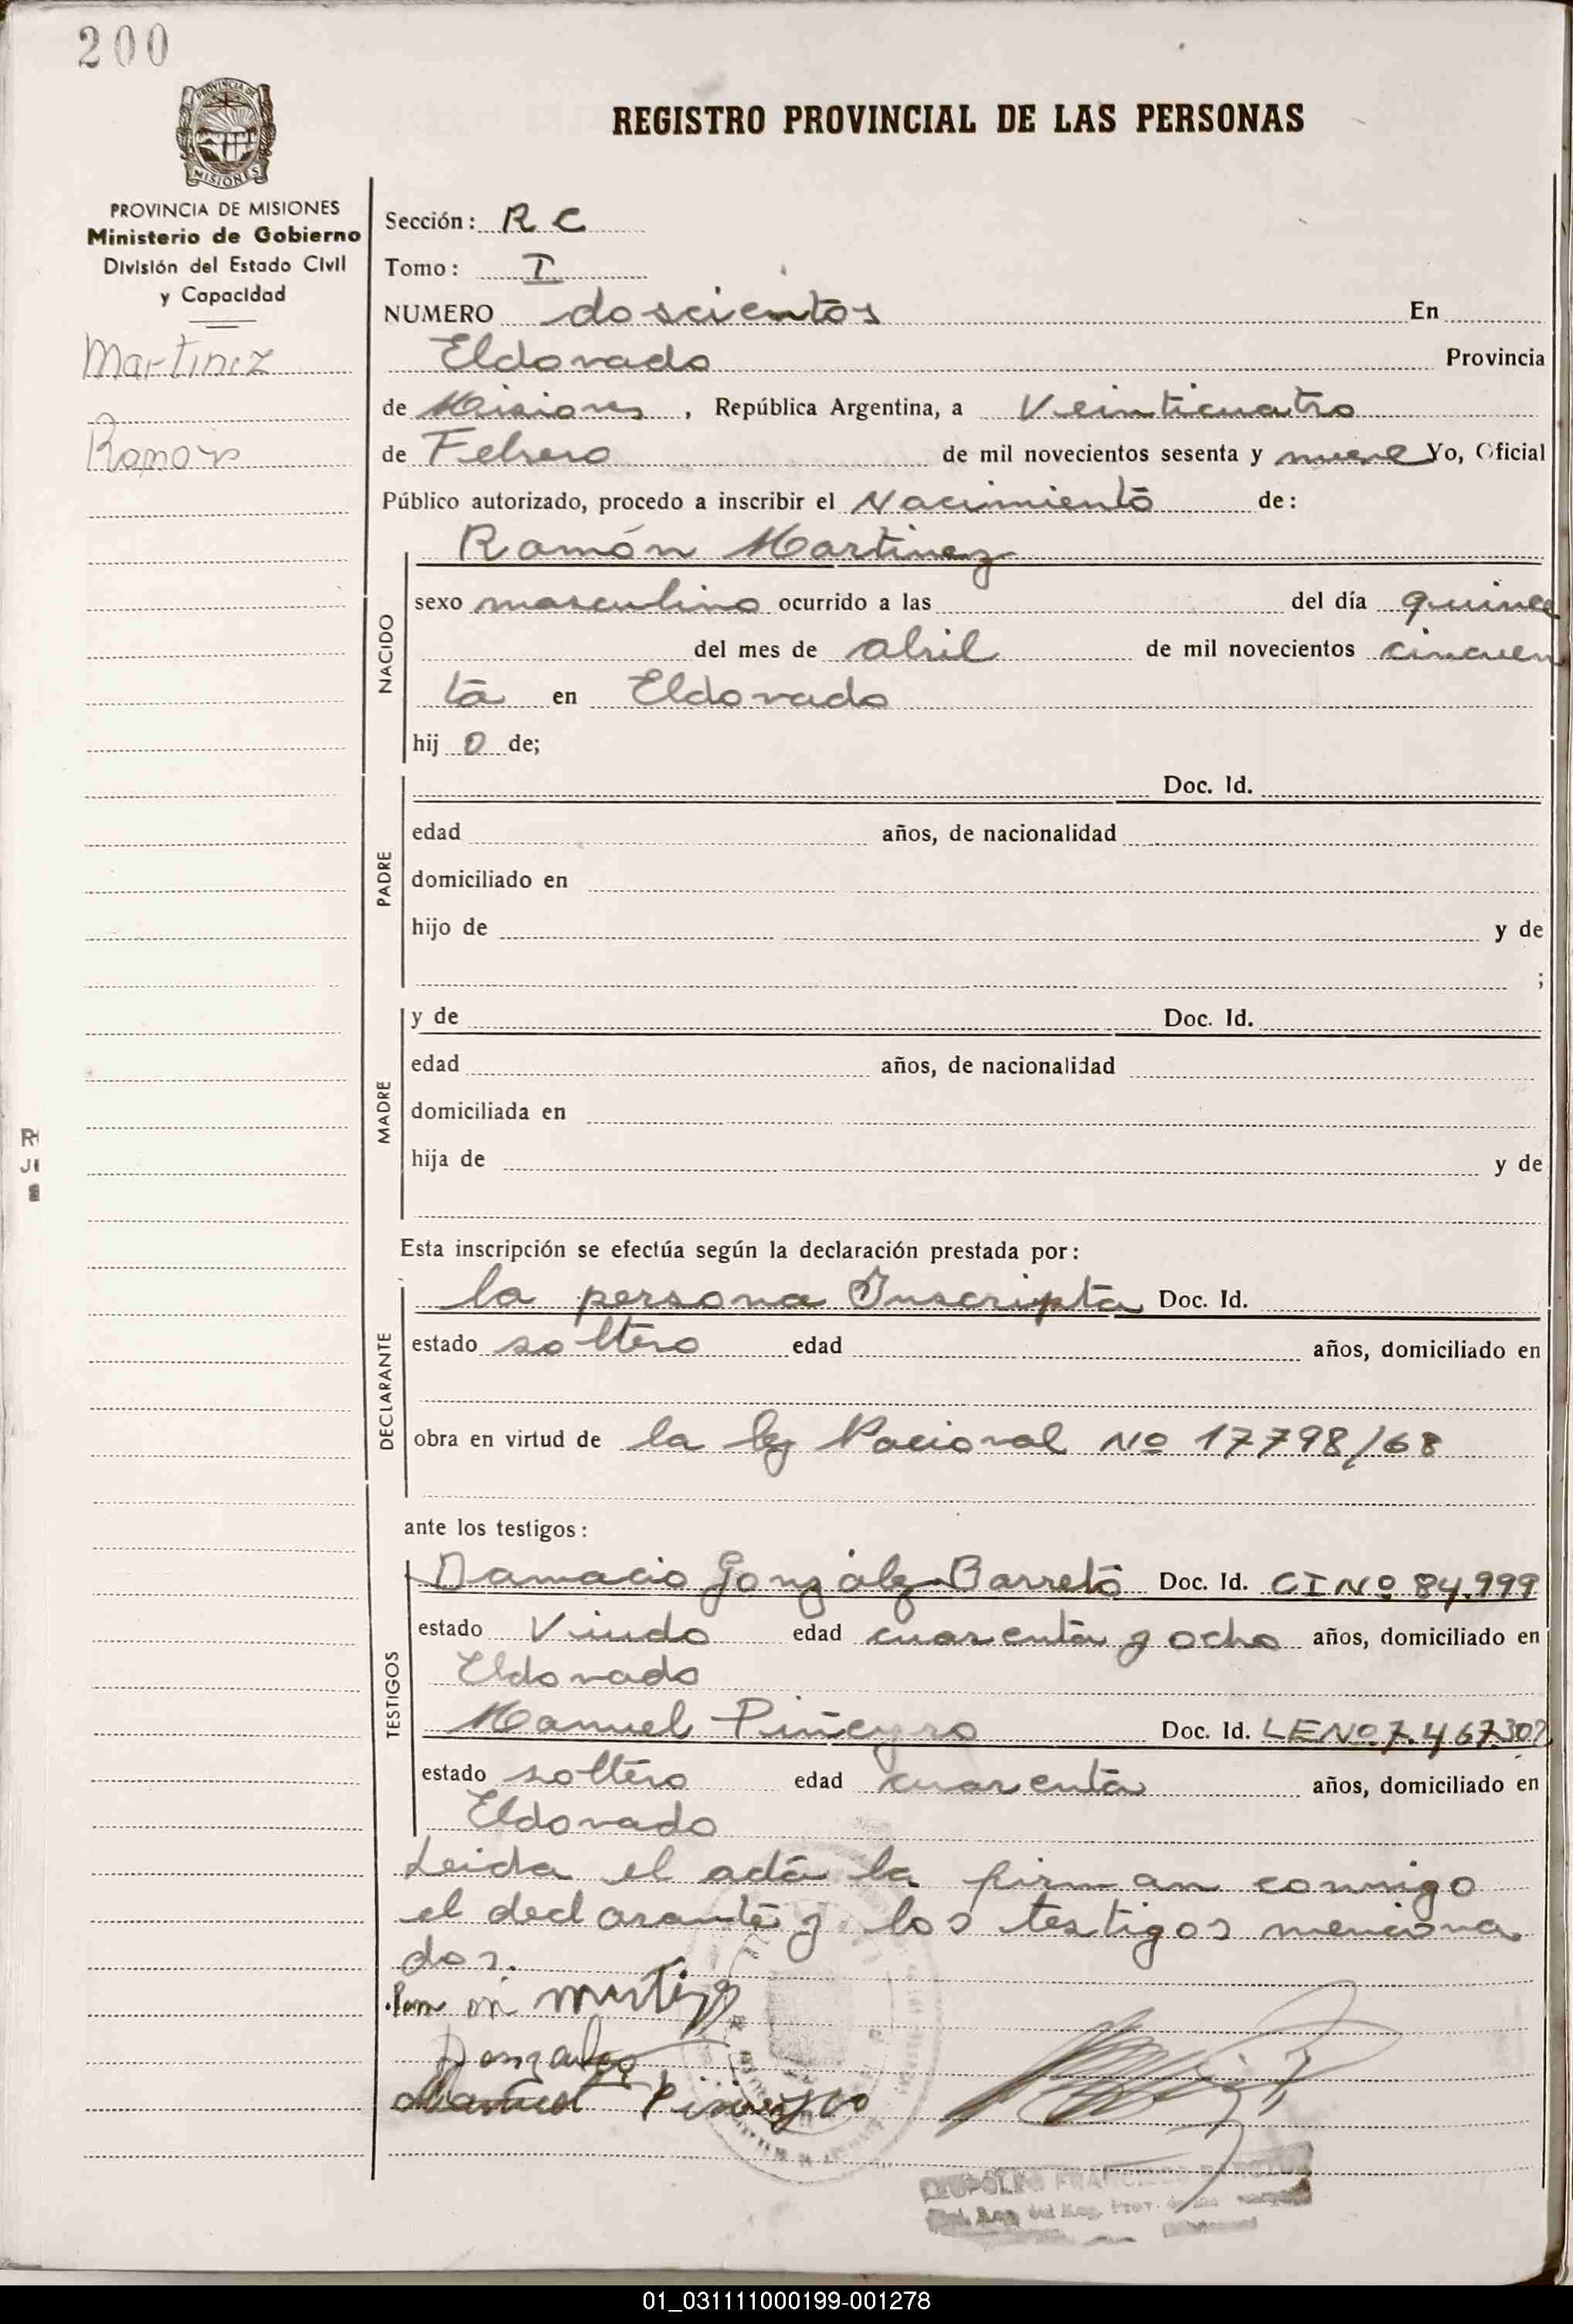 200
PROVINCIA DE MISIONES
MISIONES
REGISTRO PROVINCIAL DE LAS PERSONAS
PROVINCIA DE MISIONES
Ministerio de Gobierno
División del Estado Civil
y Capacidad
Martinez
Ramón
Sección: R C
Tomo: I
NUMERO doscientos En
Eldorado Provincia
de Misiones, República Argentina, a Veinticuatro
de Febrero de mil novecientos sesenta y nueve Yo, Oficial
Público autorizado, procedo a inscribir el Nacimiento de:
Ramón Martinez
NACIDO
sexo masculino ocurrido a las del día quince
del mes de abril de mil novecientos cincuen
ta en Eldorado
hij o de;
PADRE
Doc. Id.
edad años, de nacionalidad
domiciliado en
hijo de y de
;
MADRE
y de Doc. Id.
edad años, de nacionalidad
domiciliada en
hija de y de
Esta inscripción se efectúa según la declaración prestada por:
DECLARANTE
la persona Inscripta Doc. Id.
estado soltero edad años, domiciliado en
obra en virtud de la ley Nacional Nº 17798/68
ante los testigos:
TESTIGOS
Damacio González Barreto Doc. Id. CI Nº 84.999
estado Viudo edad cuarenta y ocho años, domiciliado en
Eldorado
Manuel Piñeyro Doc. Id. LE Nº 7.467.302
estado soltero edad cuarenta años, domiciliado en
Eldorado
Leida el acta la firman conmigo
el declarante y los testigos menciona
dos.
Ramon Martinez
Gonzalez
Manuel Piñeyro
01_031111000199-001278